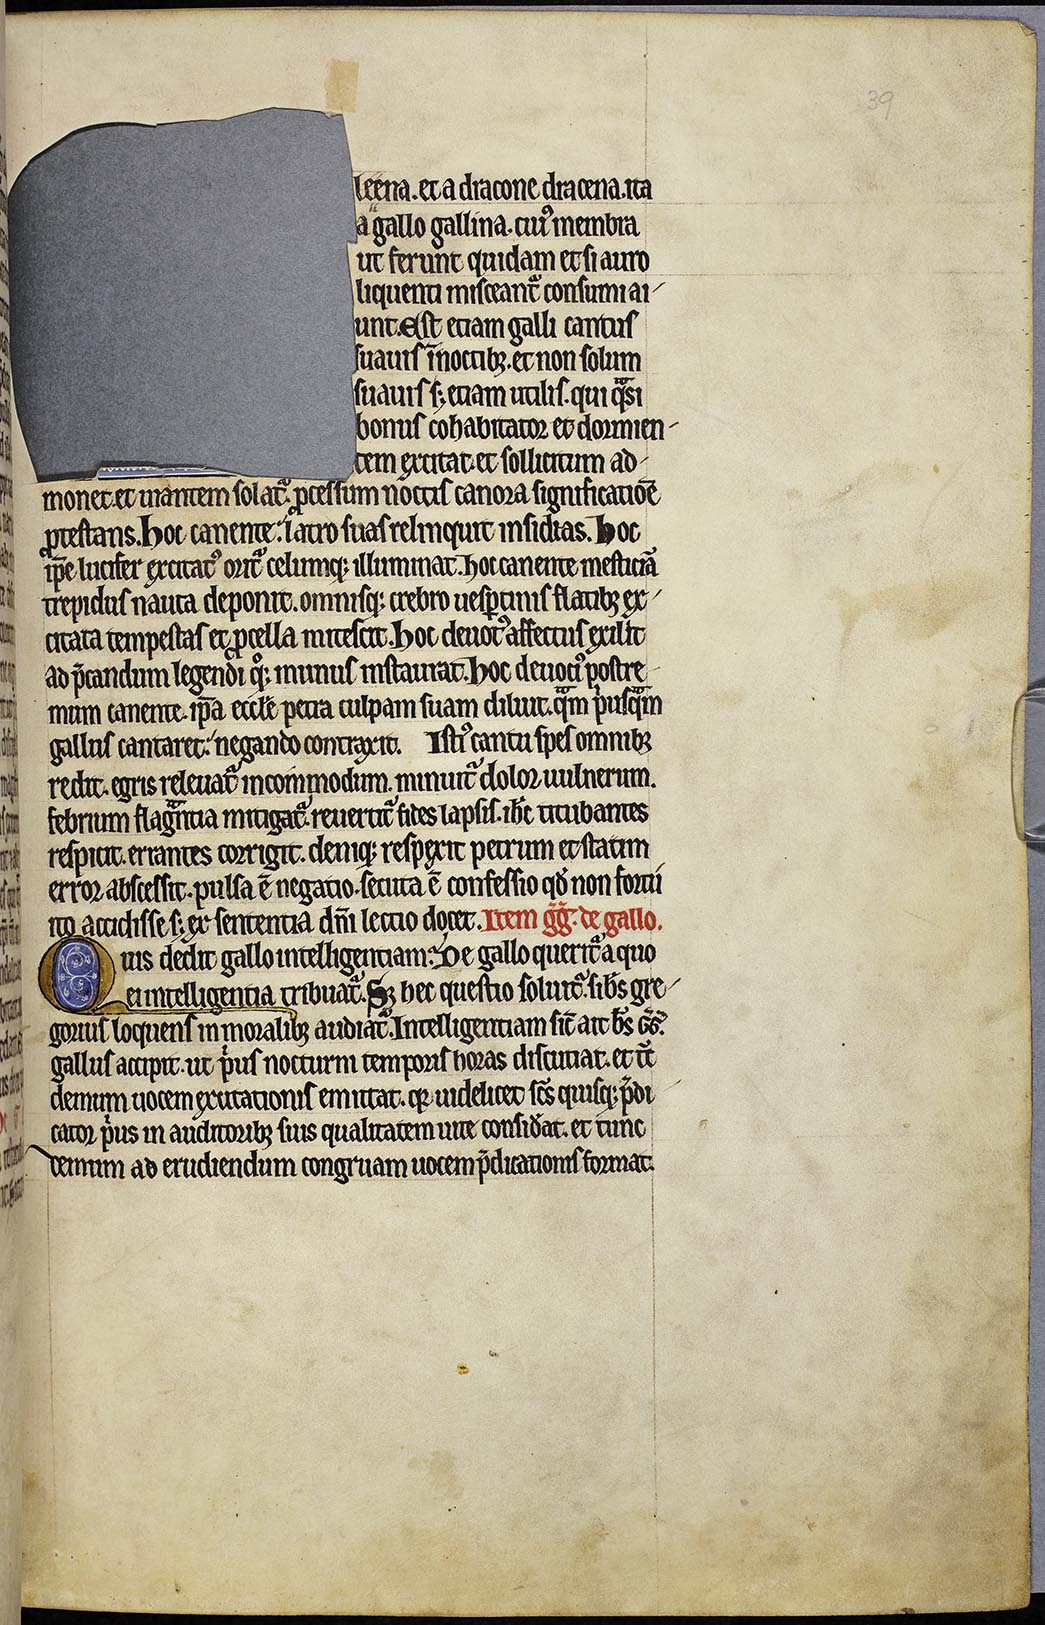 39
leena. et a dracone dracena. ita
a gallo gallina. cuiꝰ membra
ut ferunt quidam et si auro
liquenti misceant᷑ consumi ai-
unt. Est etiam galli cantus
suauis ī noctibꝫ. et non solum
suauis sꝫ etiam utilis. qui qͣsi
bonus cohabitator et dormien-
tem excitat. et sollicitum ad-
monet. et uiantem solat᷑. ꝓcessum noctis canora significatiōe
ꝓtestans. Hoc canente. latro suas relinquit insidias. Hoc
ip̄e lucifer excitatꝰ orit᷑ celumqꝫ illuminat. hoc canente mesticiā
trepidus nauta deponit. omnisqꝫ crebro uesꝑtinis flatibꝫ ex-
citata tempestas et ꝓcella mitescit. Hoc deuotꝰ affectus exilit
ad p̄candum legendi qͦqꝫ munus instaurat. Hoc deuociꝰ postre-
mum canente. ip̄a eccl̄e petra culpam suam diluit. qͣm pͥusqͣm
gallus cantaret. negando contraxit. Istiꝰ cantu spes omnibꝫ
redit. egris releuat᷑ incommodum. minuit᷑ dolor uulnerum.
febrium flagͣntia mitigat᷑. reuertit᷑ fides lapsis. ih̄c titubantes
respicit. errantes corrigit. deniqꝫ respexit petrum et statim
error abscessit. pulsa ē negatio. secuta ē confessio qd̄ non fortu
ito accidisse sꝫ ex sententia dn̄i lectio docet. Item gg̃. de gallo.
Quis dedit gallo intelligentiam. De gallo querit᷑ a quo
ei intelligentia tribuat᷑. Sꝫ hec questio soluit᷑. si b̄s gre-
gorius loquens in moralibꝫ audiat᷑. Intelligentiam sic̄ ait b̄s G̃G̃.
gallus accipit. ut pͥus nocturni temporis horas discutiat. et tc̄
demum uocem excitationis emittat. qꝛ uidelicet sc̄s quisqꝫ p̄di
cator pͥus in auditoribꝫ suis qualitatem uite consid̄at. et tunc
demum ad erudiendum congruam uocem p̄dicationis format.